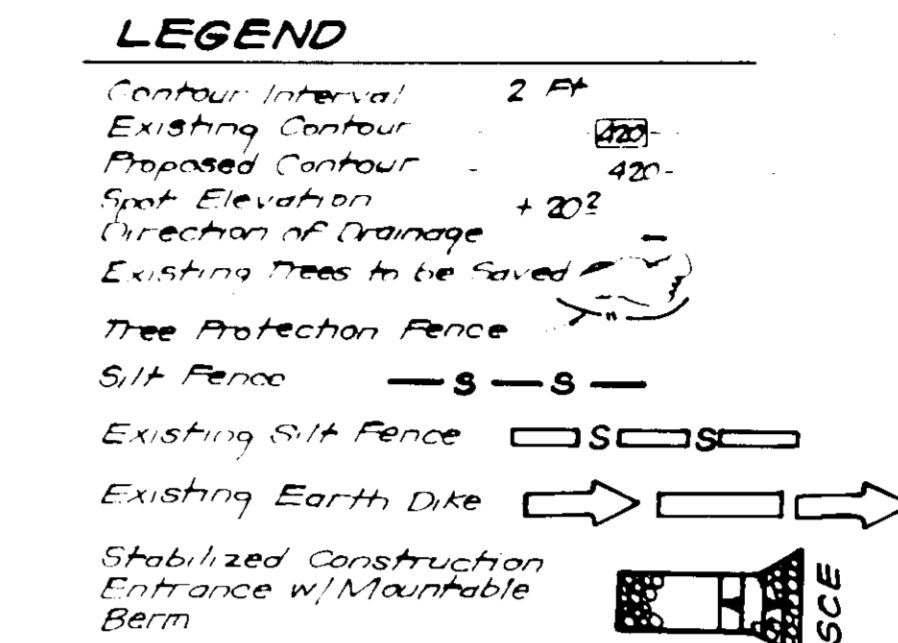 LEGEND
Contour Interval 2 Ft
Existing Contour 420
Proposed Contour 420
Spot Elevation + 20²
Direction of Drainage
Existing Trees to be Saved
Tree Protection Fence
Silt Fence S S
Existing Silt Fence S S
Existing Earth Dike
Stabilized Construction
Entrance w/Mountable
Berm
SCE